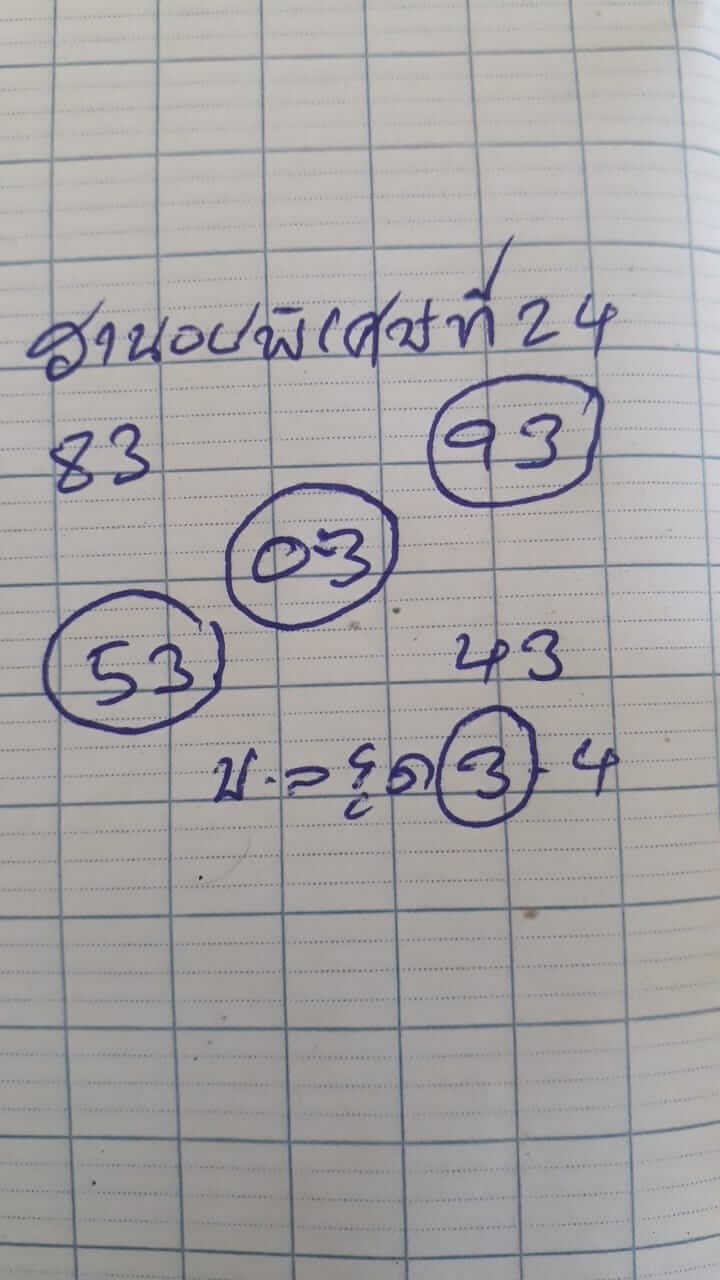 ฮานอยพิเศษที่ 24
83 93
03
53 43
รูด 3-4